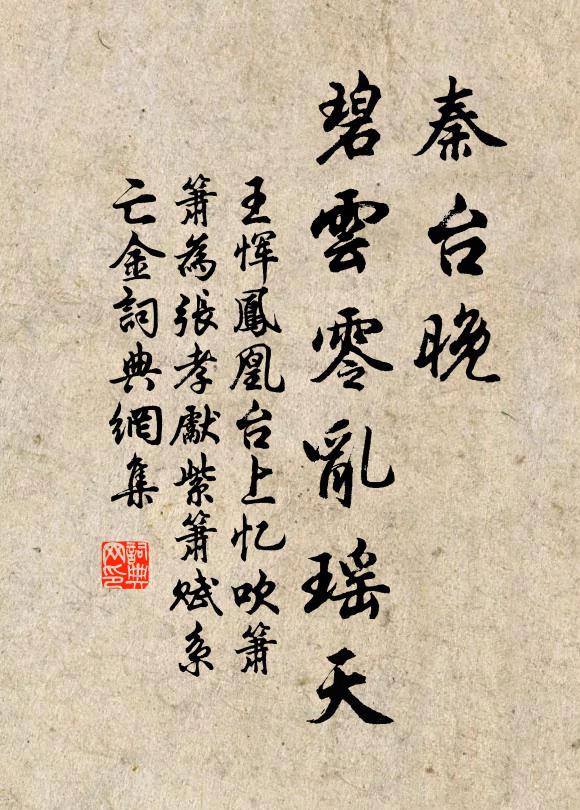 秦台晚
碧雲零亂瑶天
王惲鳳凰台上忆吹簫
簫為張孝獻紫簫赋系
亡金詞典網集
詞典網印